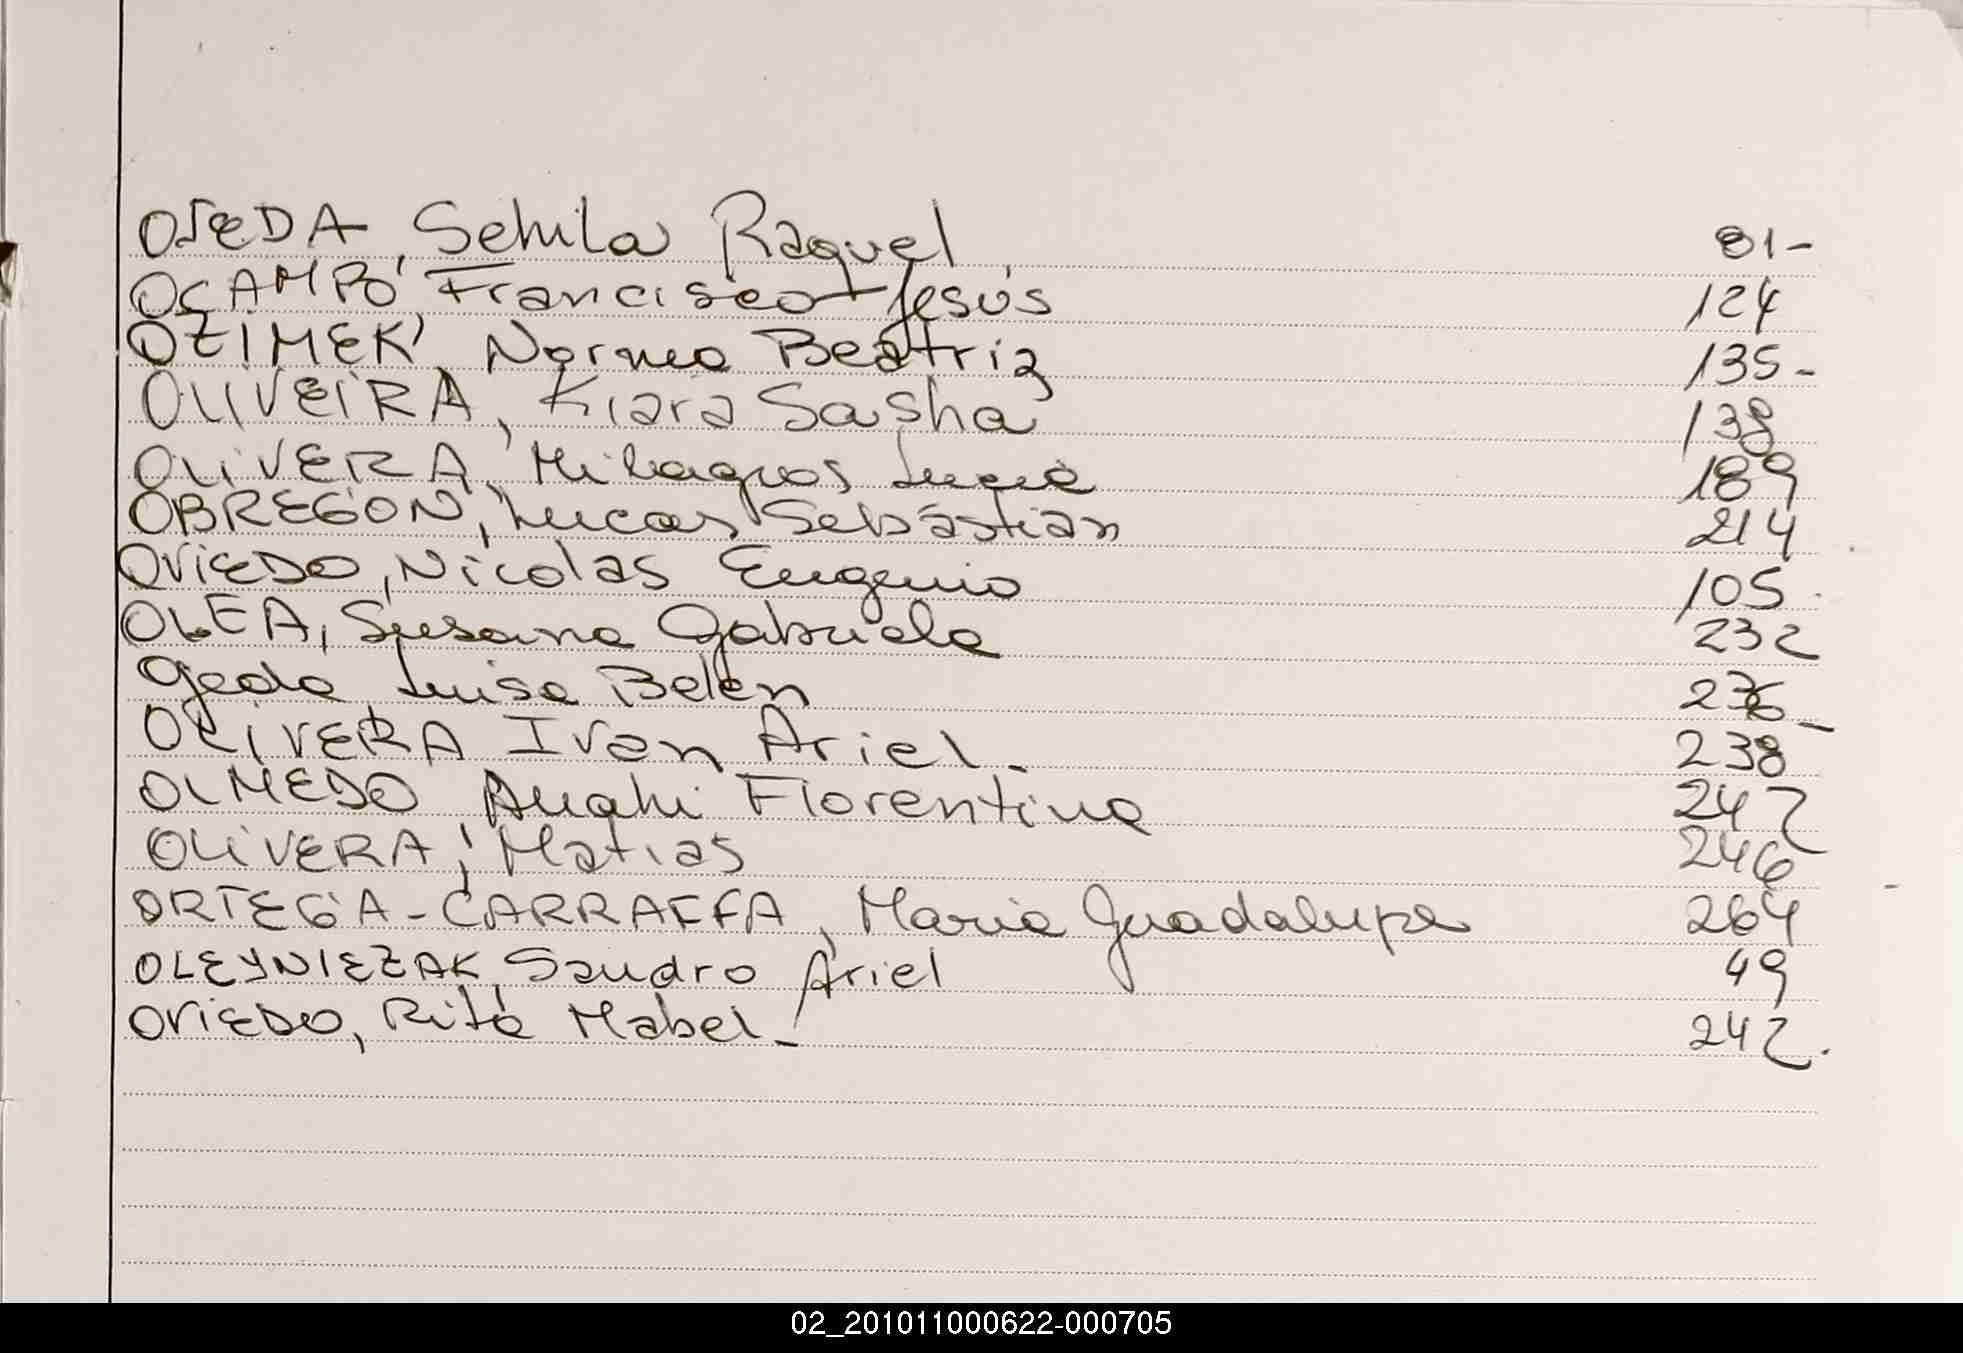 OJEDA, Sehila Raquel 81-
OCAMPO, Francisco Jesús 124
OZIMEK, Norma Beatriz 135-
OLIVEIRA, Kiara Sasha 138
OLIVERA, Milagros Lucia 189
OBREGON, Lucas Sebastian 214
OVIEDO, Nicolas Eugenio 105
OLEA, Susana Gabriela 232
Ojeda Luisa Belén 236-
OLIVERA Ivan Ariel 238
OLMEDO Anahi Florentina 242
OLIVERA, Matias 246
ORTEGA-CARRAFFA, Maria Guadalupe 264
OLEYNIEZAK, Sandro Ariel 49
OVIEDO, Rita Mabel- 242.
02_201011000622-000705